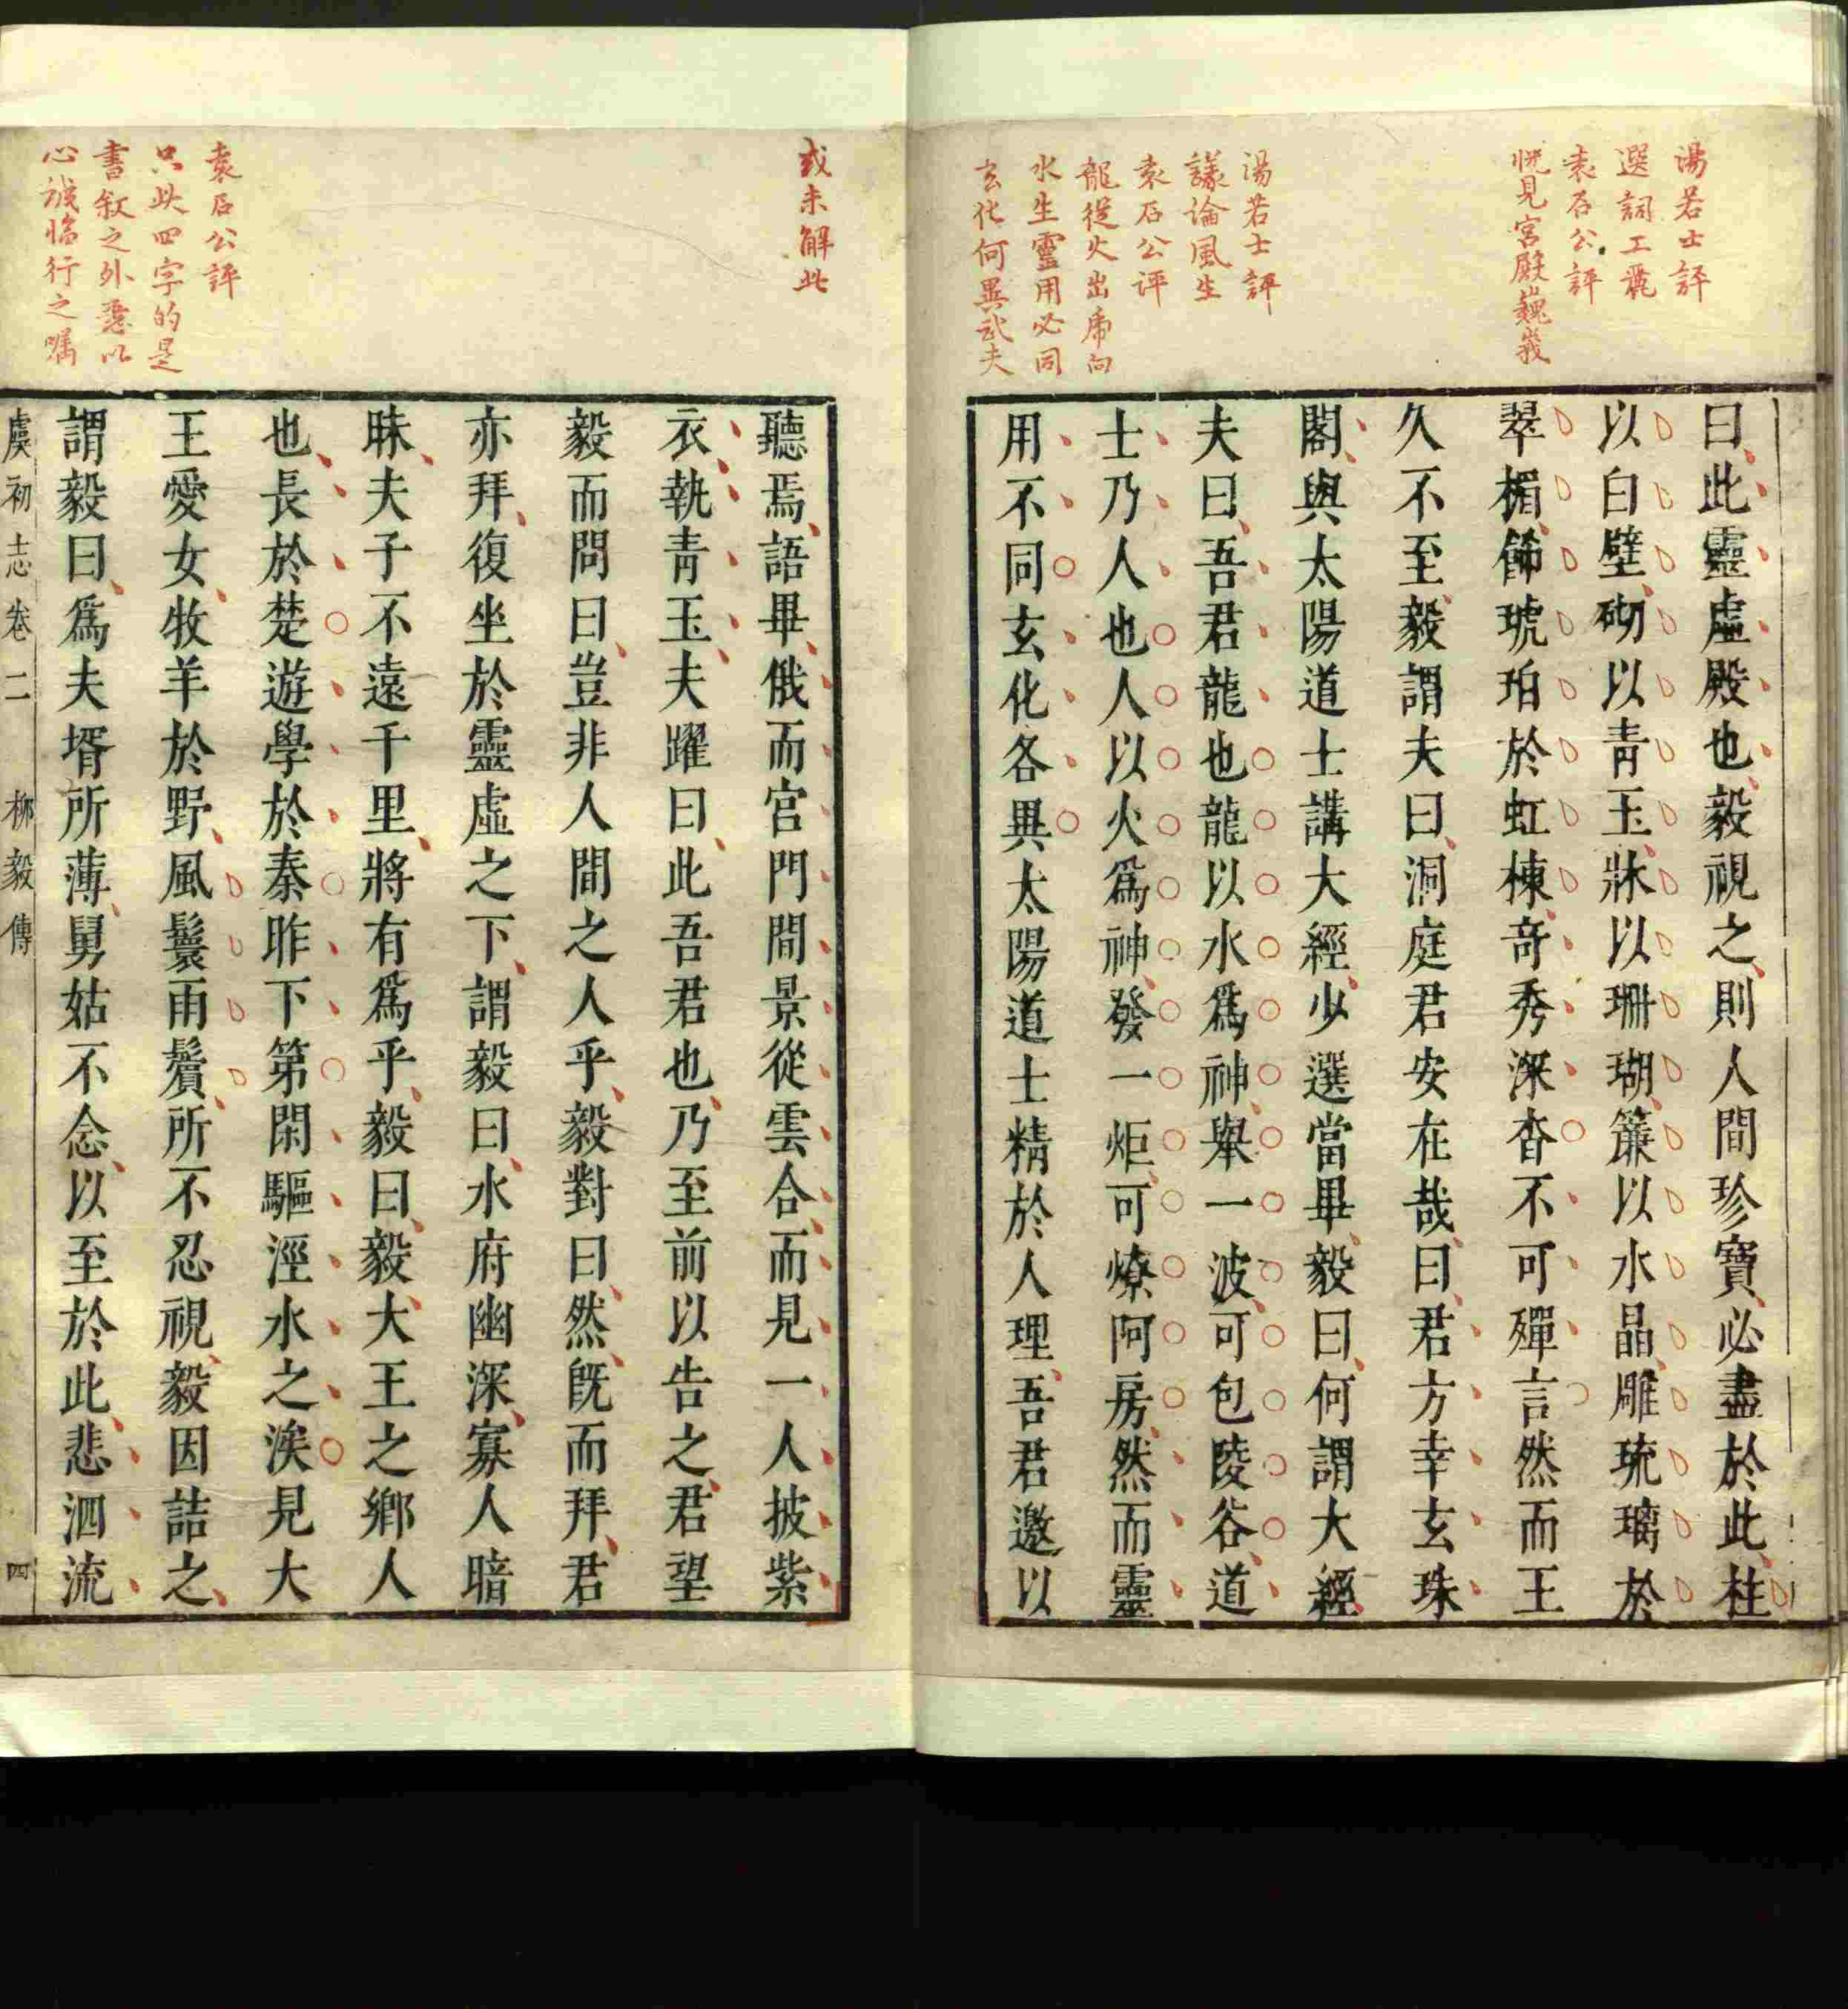 湯若士評
選詞工麗
袁石公評
恍見宮殿巍峩
湯若士評
議論風生
袁石公評
龍從火出虎向
水生靈用必同
玄化何異武夫
曰此靈虛殿也毅視之則人間珍寶必盡於此柱
以白壁砌以青玉牀以珊瑚簾以水晶雕琉璃於
翠楣餙琥珀於虹棟竒秀深杳不可殫言然而王
久不至毅謂夫曰洞庭君安在哉曰君方幸玄珠
閣與太陽道士講大經少選當畢毅曰何謂大經
夫曰吾君龍也龍以水爲神舉一波可包陵谷道
士乃人也人以火爲神發一炬可燎阿房然而靈
用不同玄化各異太陽道士精於人理吾君邀以
或未解此
袁石公評
只此四字的是
書叙之外悪以
心誠臨行之囑
聽焉語畢俄而宮門間景從雲合而見一人披紫
衣執青玉夫躍曰此吾君也乃至前以告之君望
毅而問曰豈非人間之人乎毅對曰然旣而拜君
亦拜復坐於靈虛之下謂毅曰水府幽深寡人暗
昧夫子不遠千里將有爲乎毅曰毅大王之鄉人
也長於楚遊學於秦昨下第閑驅涇水之涘見大
王愛女牧羊於野風鬟雨鬢所不忍視毅因詰之
謂毅曰爲夫壻所薄舅姑不念以至於此悲泗流
虞初志卷二 柳毅傳 四